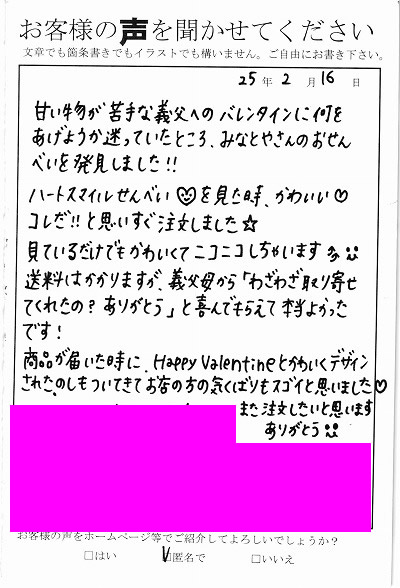 お客様の声を聞かせてください
文章でも箇条書きでもイラストでも構いません。ご自由にお書き下さい。
25年 2月16日
甘い物が苦手な義父へのバレンタインに何を
あげようか迷っていたところ、みなとやさんのおせん
べいを発見しました!!
ハートスマイルせんべいを見た時、かわいい♡
コレだ!!と思いすぐ注文しました☆
見ているだけでもかわいくてニコニコしちゃいます
送料はかかりますが、義父母から「わざわざ取り寄せ
てくれたの?ありがとう」と喜んでもらえて本当よかった
です!
商品が届いた時に、Happy Valentineとかわいくデザイン
された、のしもついてきてお店の方の気くばりもスゴイと思いました♡
また注文したいと思います
ありがとう
お客様の声をホームページ等でご紹介してよろしいでしょうか?
□はい ☑匿名で □いいえ